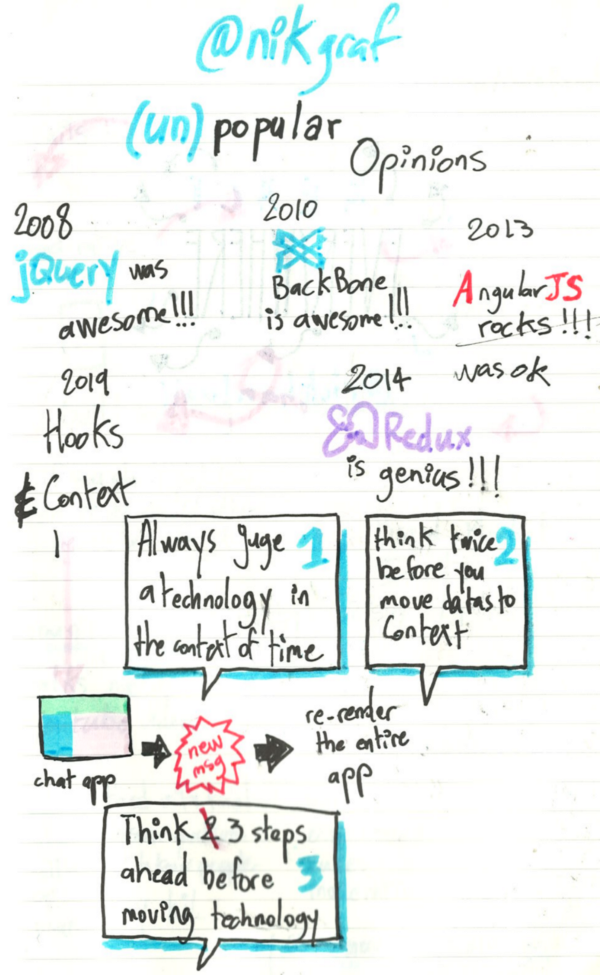 @nikgraf
(un) popular
Opinions
2008
jQuery was
awesome!!!
2010
BackBone
is awesome!!!
2013
AngularJS
rocks!!!
was ok
2019
Hooks
& Context
2014
Redux
is genius!!!
Always juge 1
a technology in
the context of time
think twice 2
before you
move datas to
Context
chat app
new
msg
re-render
the entire
app
Think 2 3 steps
ahead before 3
moving technology